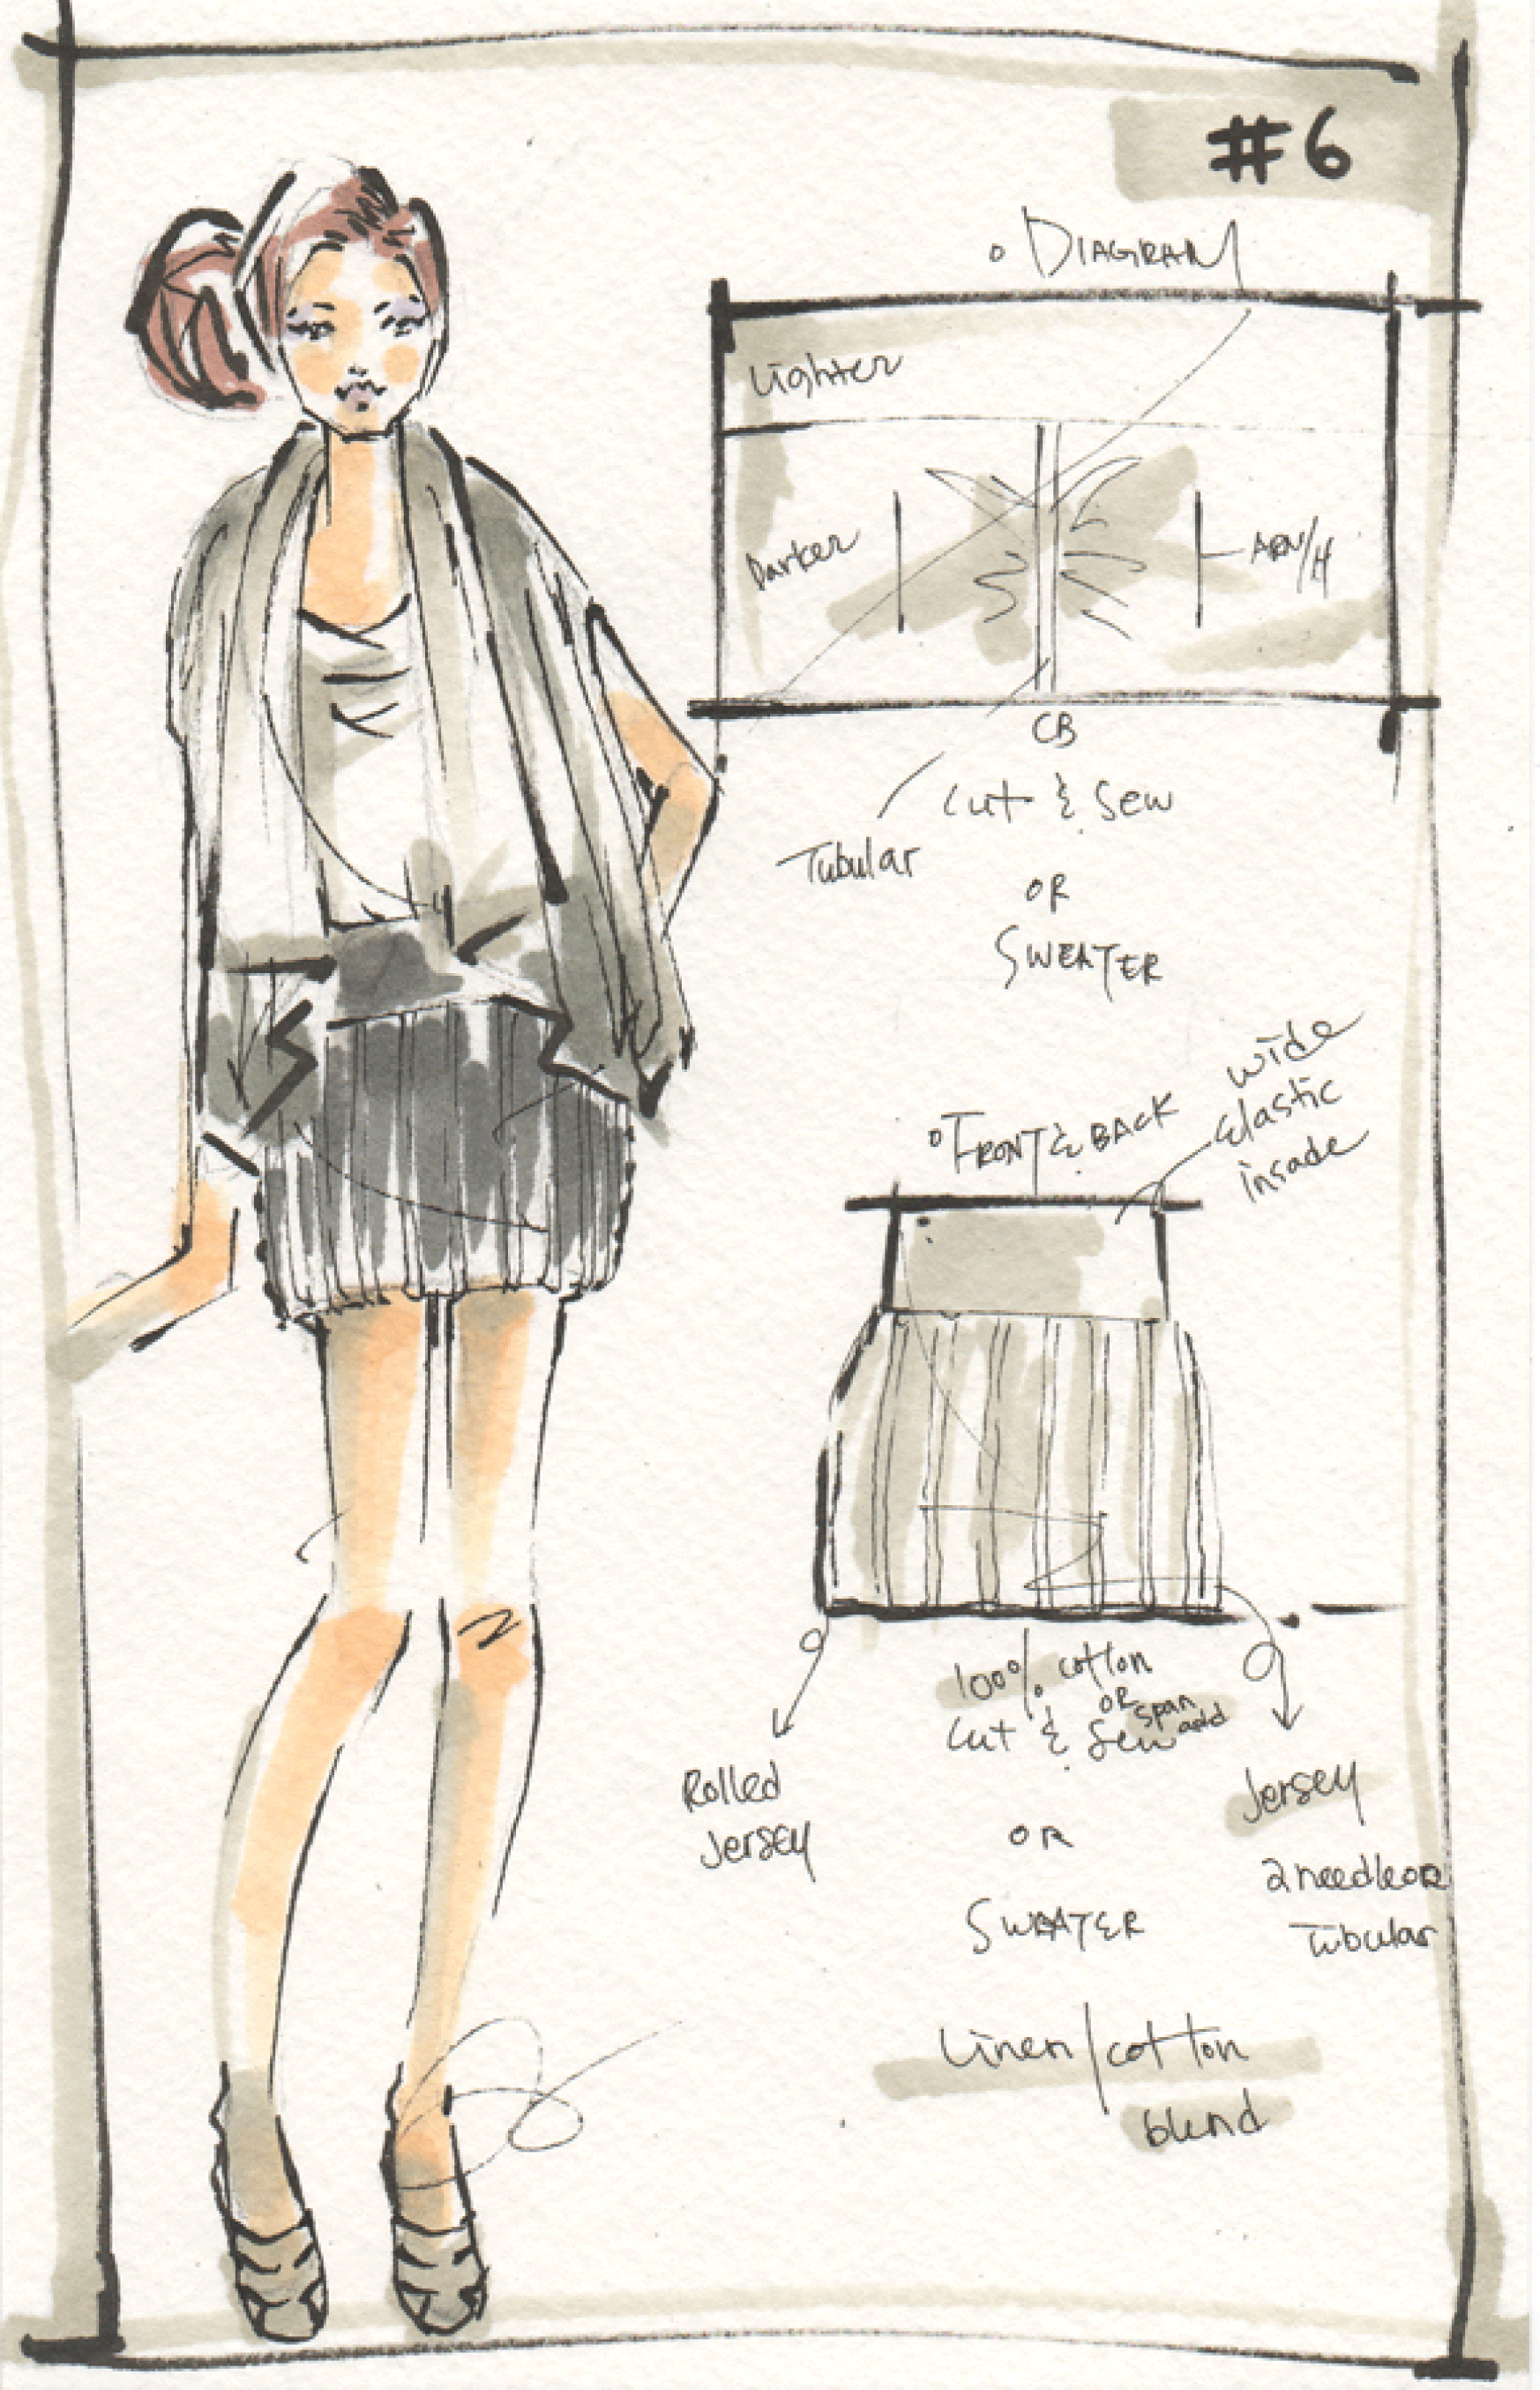 #6
DIAGRAM
Lighter
Darker
ARM/H
CB
Cut & Sew
Tubular
OR
SWEATER
Wide
Elastic
insade
FRONT & BACK
100% cotton
OR span
Cut & Sew add
Rolled
Jersey
Jersey
OR
2needle OR
Tubular
SWEATER
Linen/cotton
blend